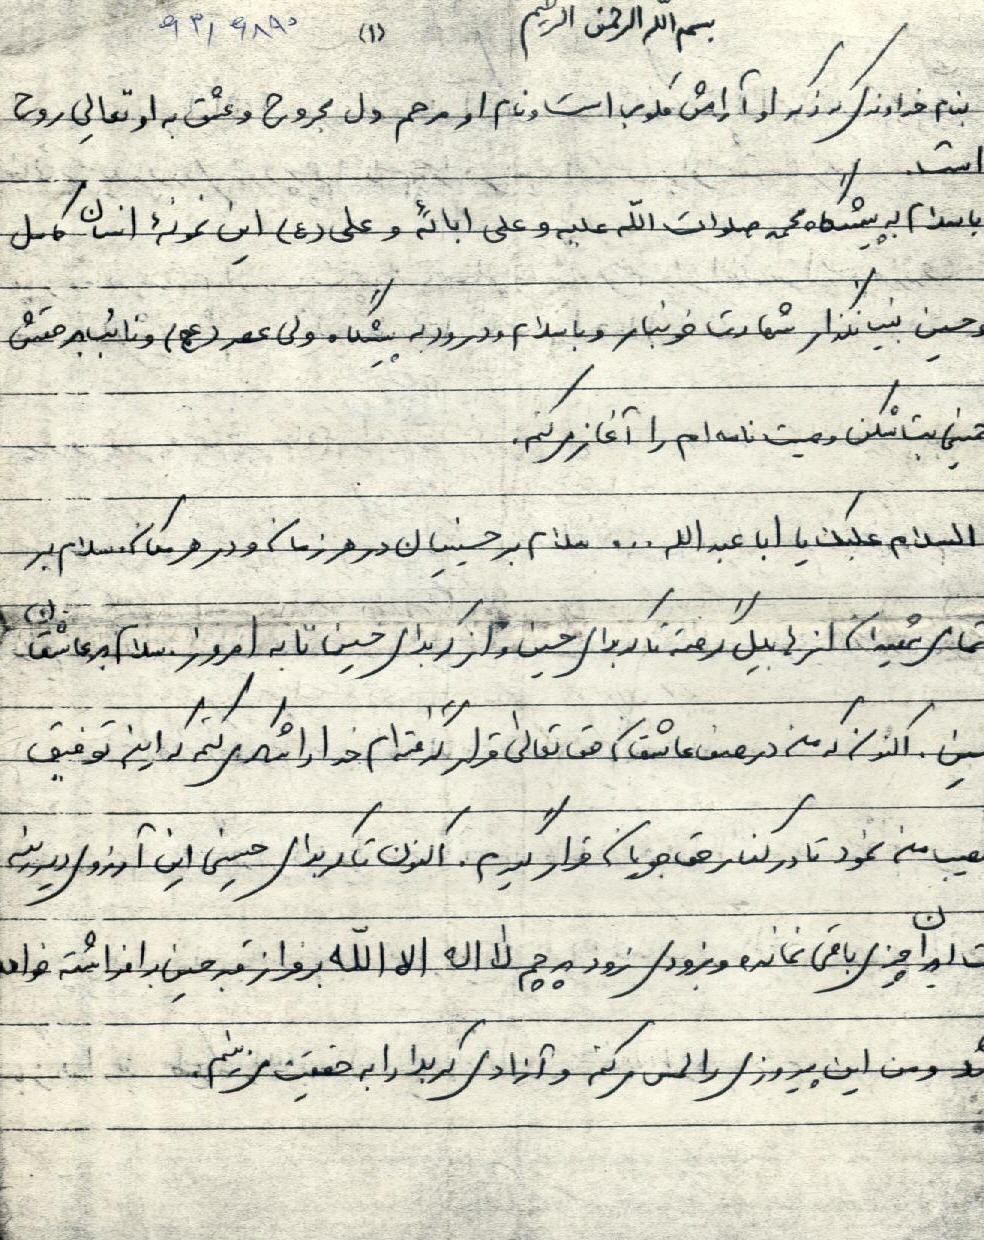 بسم الله الرحمن الرحیم
(۱)
بنام خداوندی که ذکر او آرامش قلوب است و نام او مرحم دل مجروح و عشق به او تعالی روح
است.
باسلام به پیشگاه محمد صلوات الله علیه و علی ابائهُ و علی (ع) این نمونهٔ انسان کامل
وحسین بنیانگذار شهادت خونبار و باسلام و درود به پیشگاه ولی عصر (عج) و نائب برحقش
خمینی بت شکن وصیت نامه ام را آغاز می کنم.
السلام علیک یا ابا عبدالله ... سلام بر حسینیان در هر زمان و در هر مکان. سلام بر
تمامی شهیدان از هابیل گرفته تا کربلای حسین و از کربلای حسین تا به امروز. سلام بر عاشقان
حسین. اکنون که من در صف عاشقان حق تعالی قرار گرفته ام خدا را شکر می کنم که این توفیق
نصیب من نمود تا در کنار حق جویان قرار گیرم. اکنون تا کربلای حسینی این آرزوی دیرینه
ایران چیزی باقی نمانده و بزودی زود پرچم لا اله الا الله بر فراز قبر حسین برافراشته خواهد
شد و من این پیروزی را لمس می کنم و آزادی کربلا را به حقیقت می بینم.